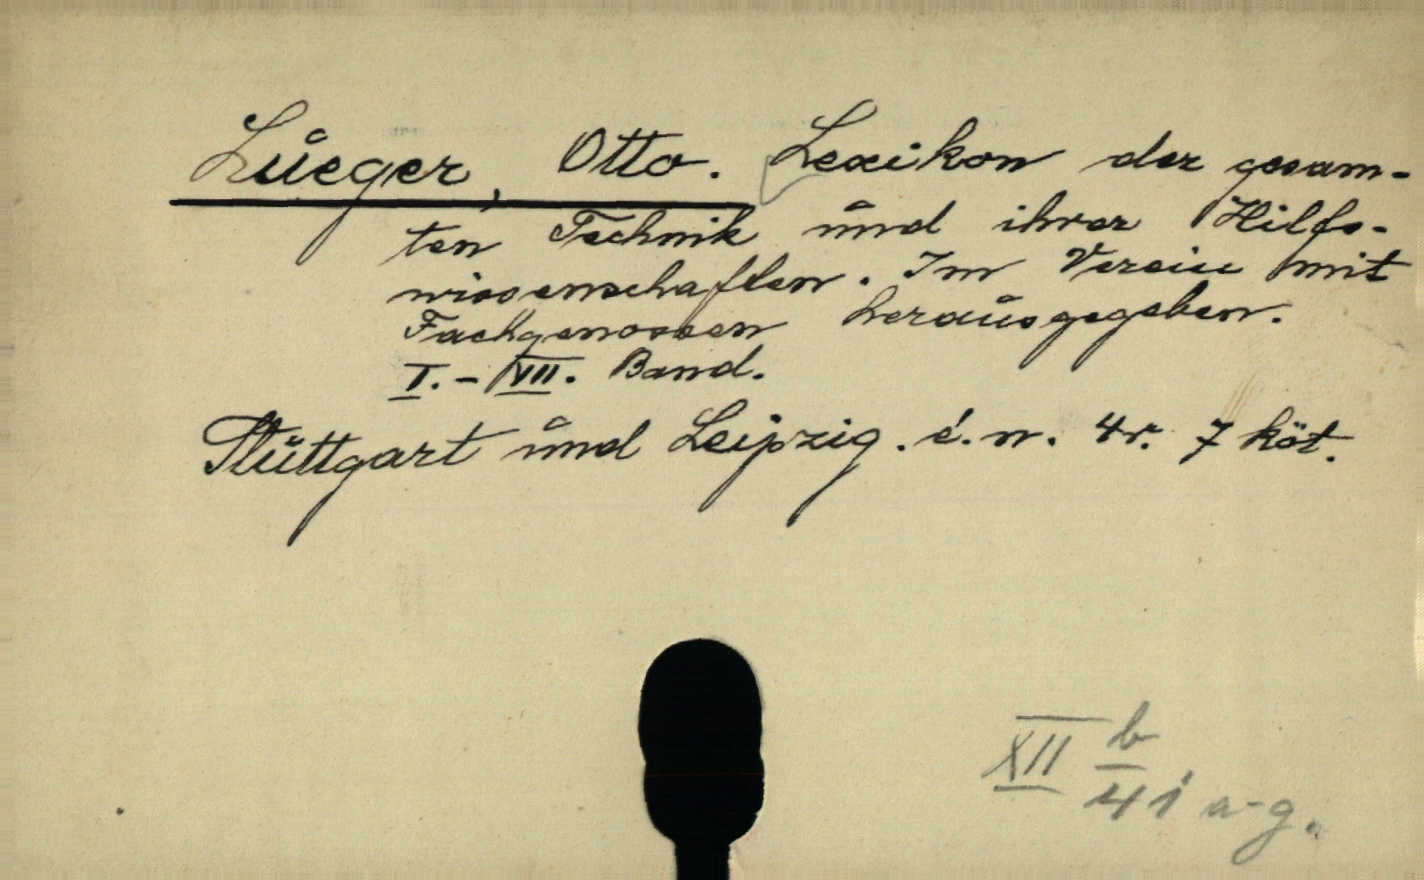 Lueger, Otto. Lexikon der gesam-
ten Technik und ihrer Hilfs-
wissenschaften. Im Verein mit
Fachgenossen herausgegeben.
I.-VII. Band.
Stuttgart und Leipzig. é. n. 4r. 7 köt.
XII b
41 a-g.